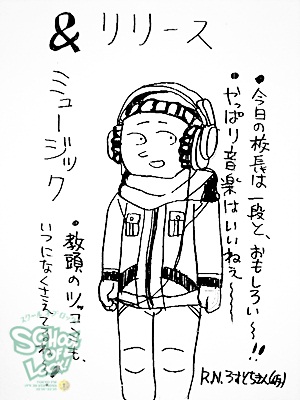 & リリース
ミュージック
•今日の校長は一段と、おもしろい〜!!
•やっぱり音楽はいいねぇ〜〜〜
•教頭のツッコミも、
いつになくさえてるす
R.N.ろすとちさん(仮)
SCHOOL OF LOCK!